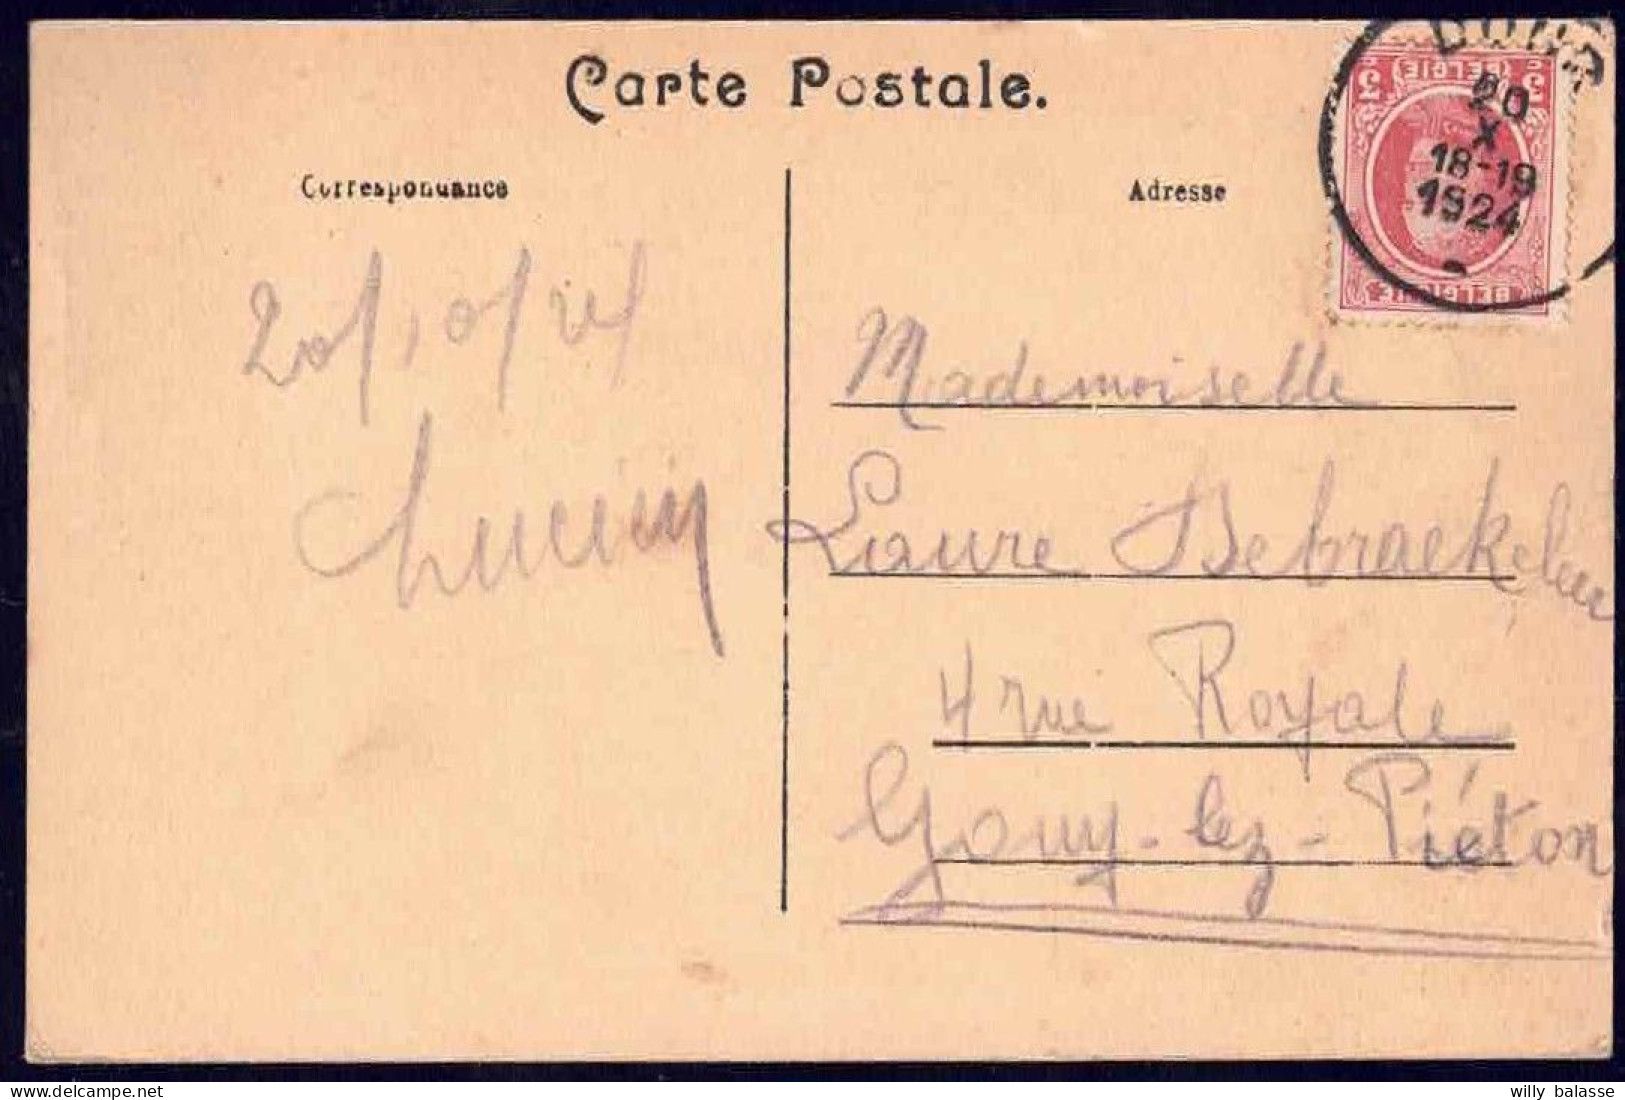 Carte Postale.
Correspondance
Adresse
20
X
18-19
1924
(BELGIE)
5
5
BELGIQUE
20/10/24
Lucien
Mademoiselle
Laure Debraekeleer
4 rue Royale
Gouy-lez-Piéton
willy balasse